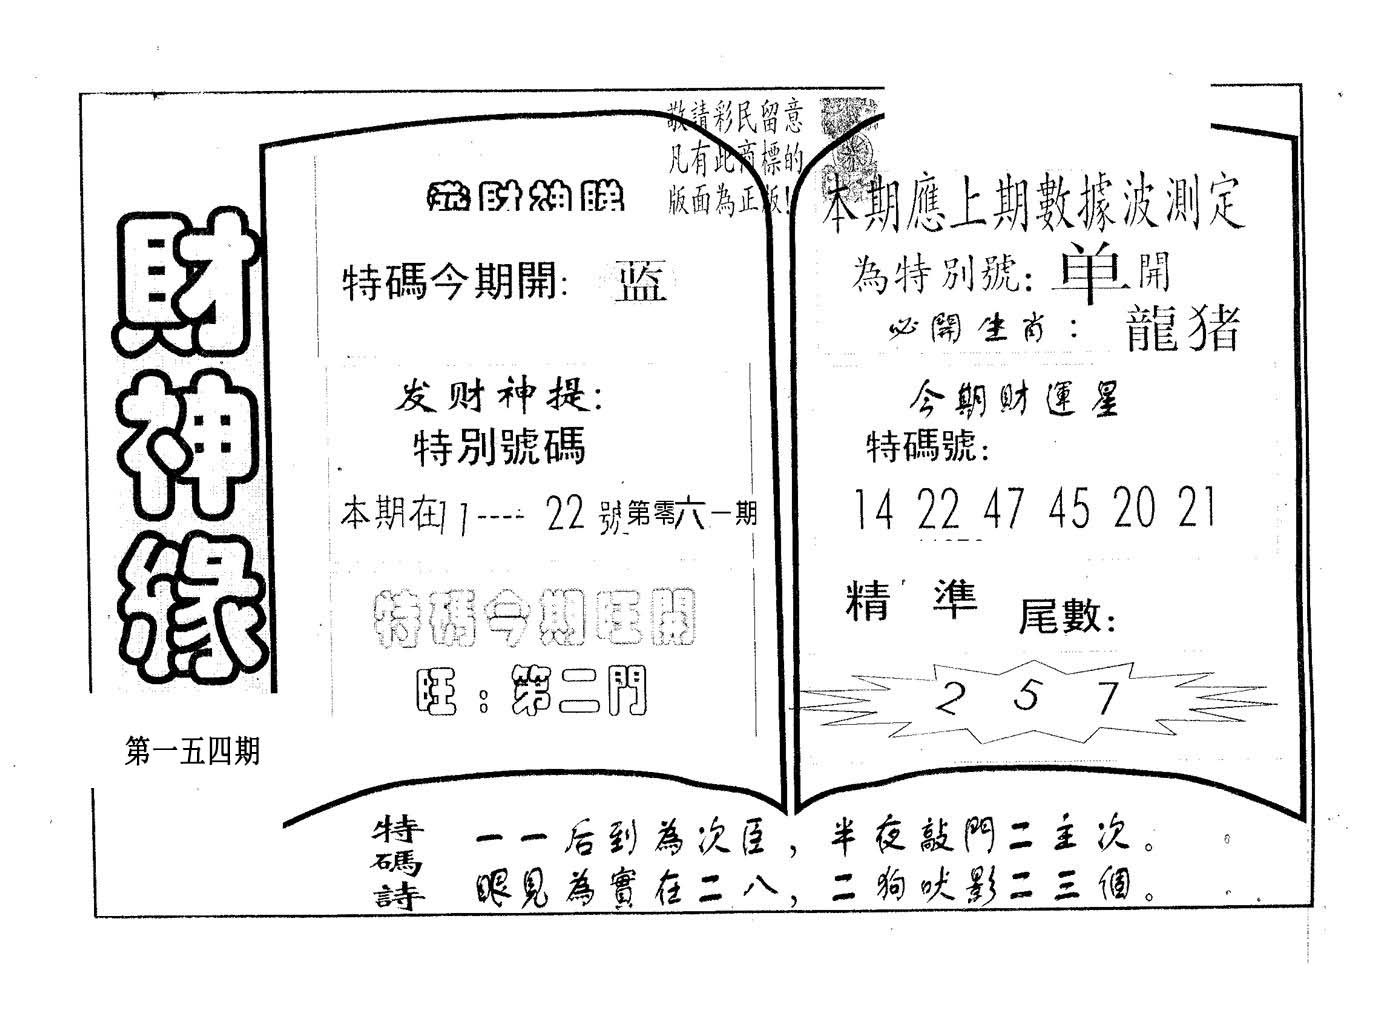 財神緣
第一五四期
敬請彩民留意
凡有此商標的
版面為正版!
特碼今期開: 蓝
发财神提:
特別號碼
本期在11---- 22 號第零六一期
特碼今期旺開
旺: 第二門
本期應上期數據波測定
為特別號: 单開
必開生肖: 龍猪
今期財運星
特碼號:
14 22 47 45 20 21
精 準 尾數:
2 5 7
特碼詩
一一后到為次臣, 半夜敲門二主次。
眼見為實在二八, 二狗吠影二三個。